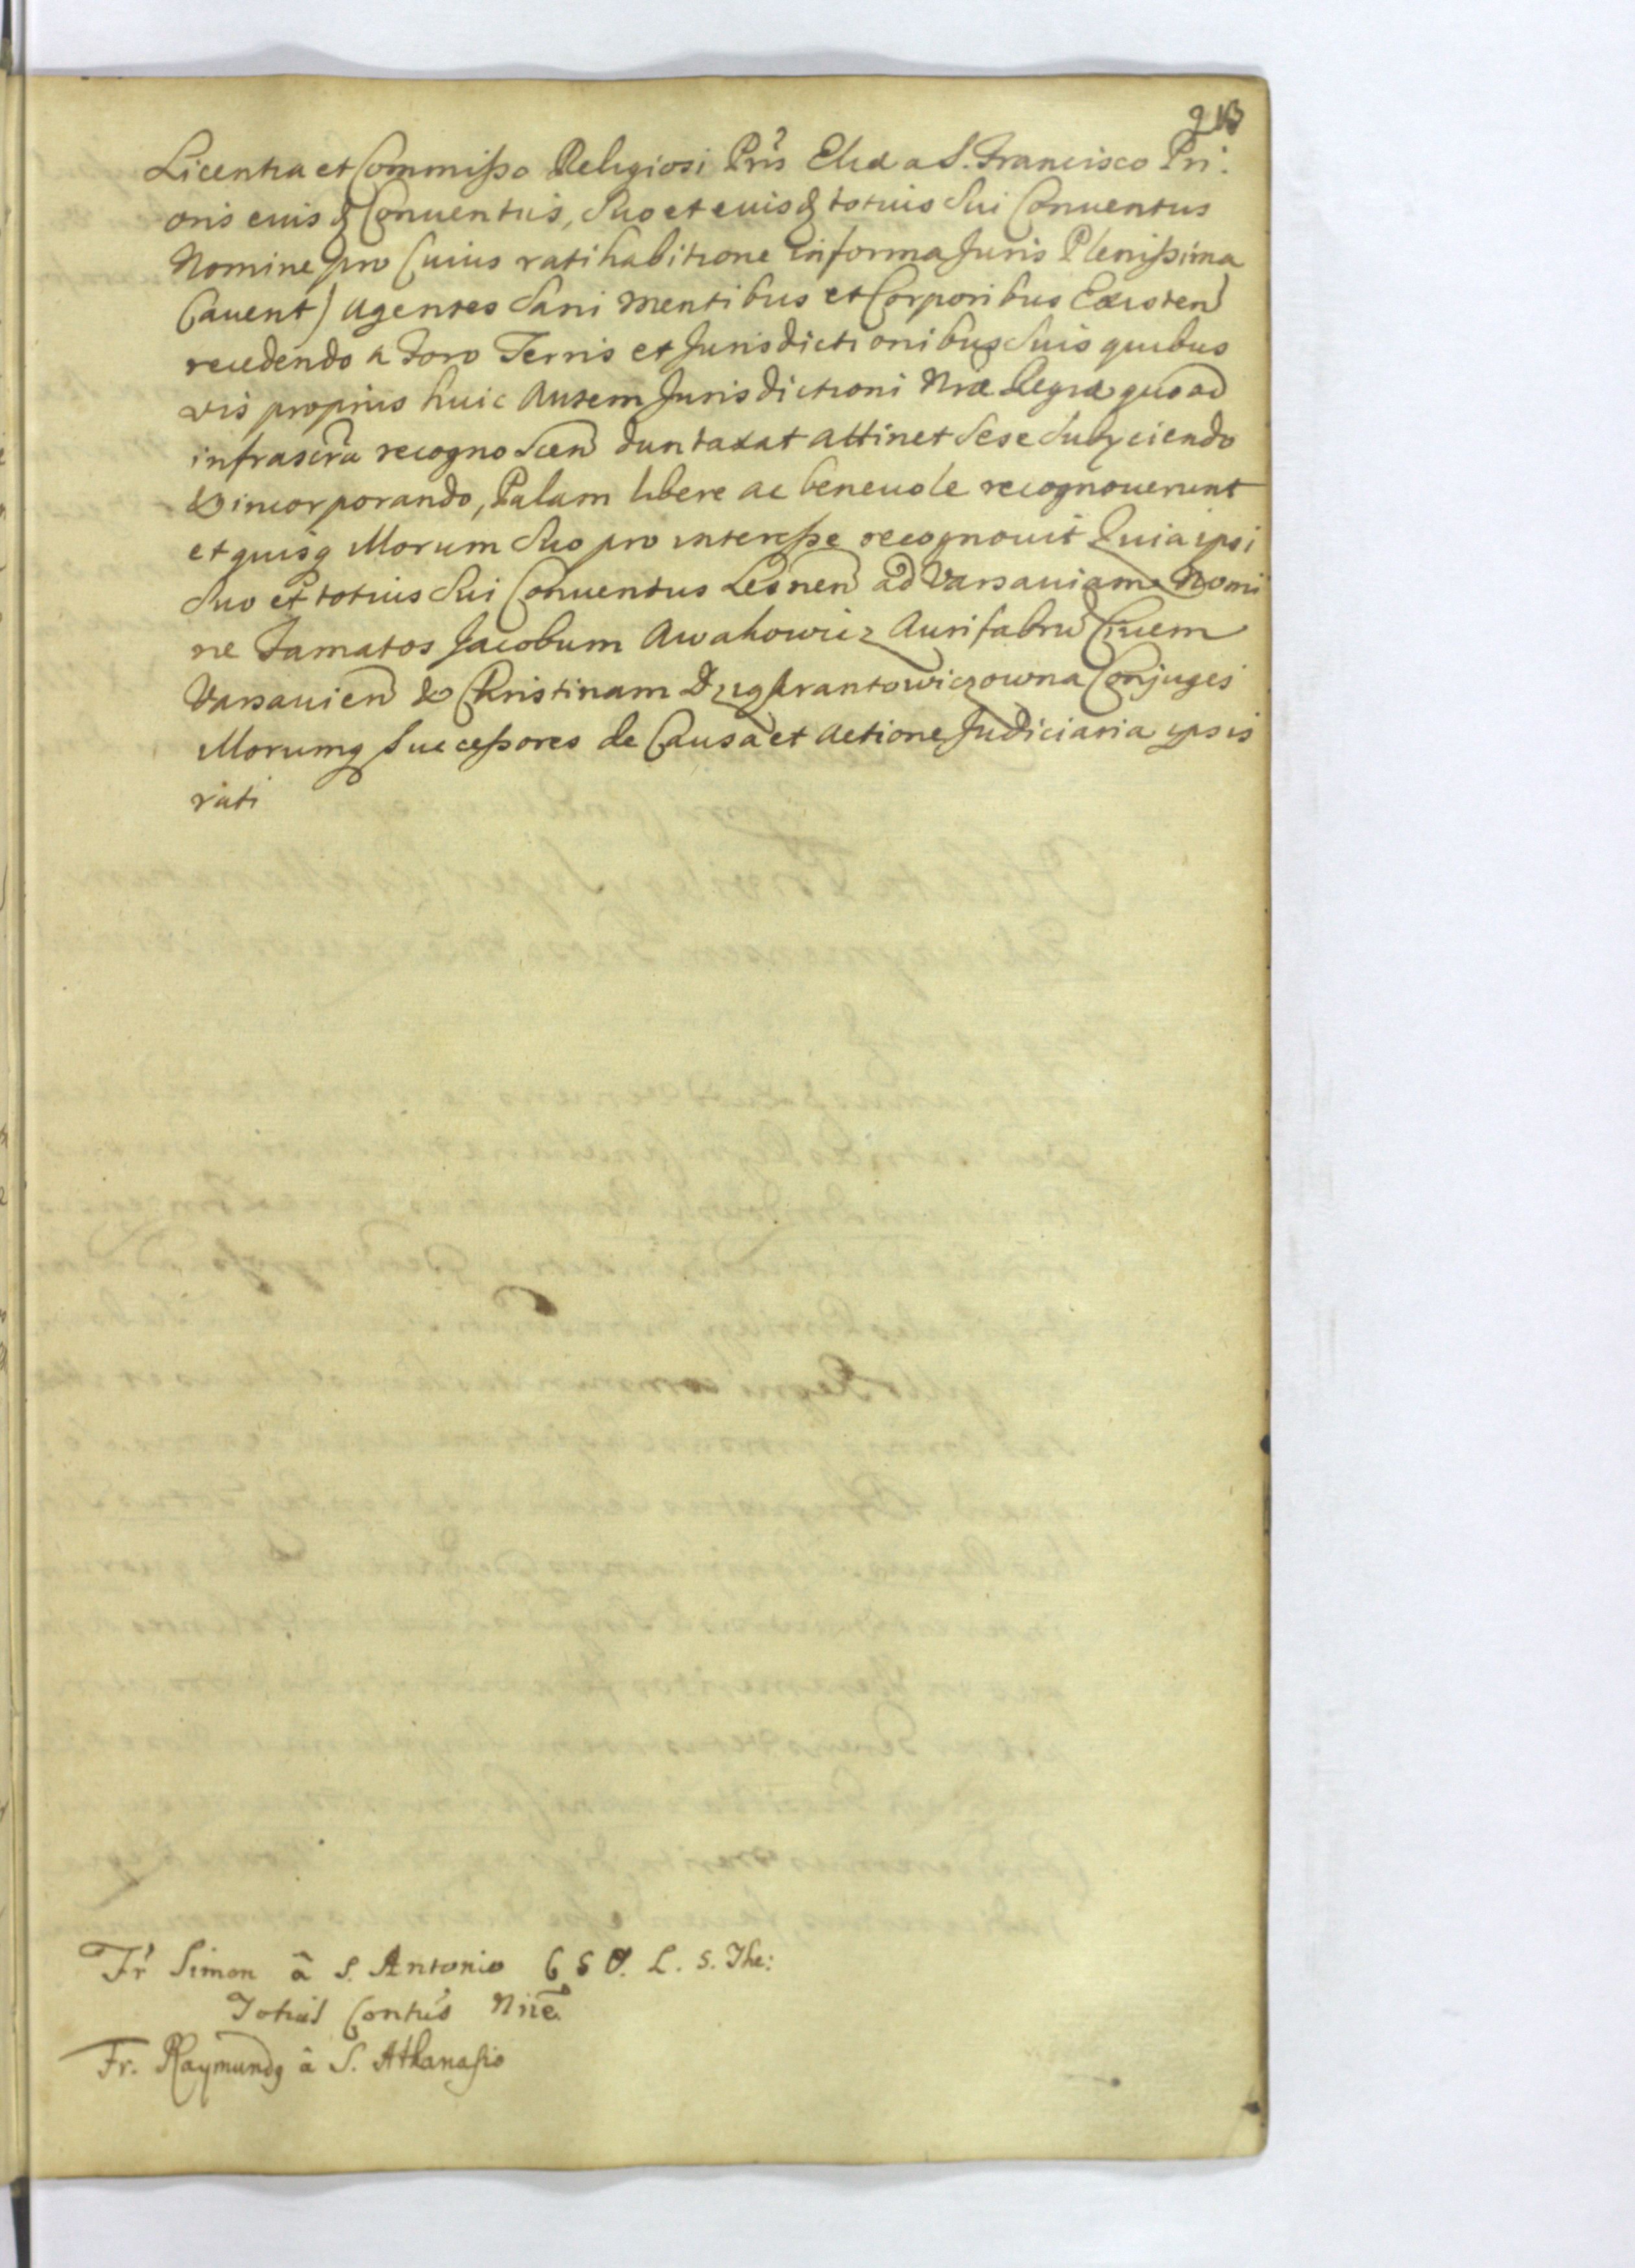 213
Licentia et Commisso Religiosi Pris Eliæ a S. Francisco Pri:
oris euisq Conuentus, Suo et euisq totius Sui Conuentus
Nomine pro Cuius ratihabitione in forma Juris Plenissima
Cauent) agentes Sani mentibus et Corporibus Existen
recedendo a Foro Terris et Jurisdictionibus Suis quibus
vis proprijs huic Autem Jurisdictioni Nræ Regiæ quo ad
infrascra recognoscen duntaxat attinet Sese Subijciendo
& incorporando, Palam libere ac beneuole recognouerunt
et quisq Illorum Suo pro interesse recognouit Quia ipsi
Suo et totius Sui Conuentus Lesnen ad Varsauiam Nomi
ne Famatos Jacobum Awakowicz Aurifabru Ciuem
Varsauien & Christinam Conjuges
Illorumq Successores de Causa et Actione Judiciaria ipsis
rati
Fr Simon â S. Antonio L. S. The:
Totius Contus Nñe
Fr. Raymundq â S. Athanasio